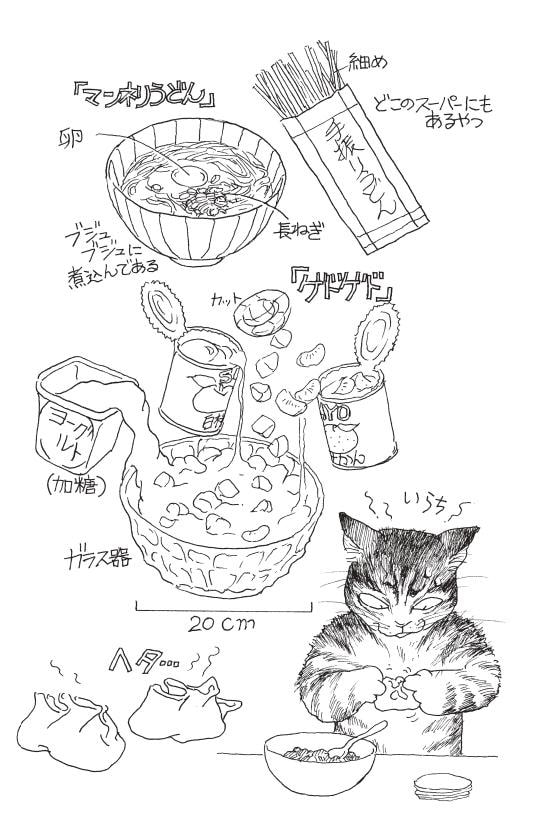 「マンネリうどん」
卵
細め
どこのスーパーにも
あるやつ
手振りうどん
長ねぎ
ブジュ
ブジュに
煮込んである
「ゲドゲド」
カット
ヨーグルト
(加糖)
YO
かん
ガラス器
20cm
いらち
ヘタ…